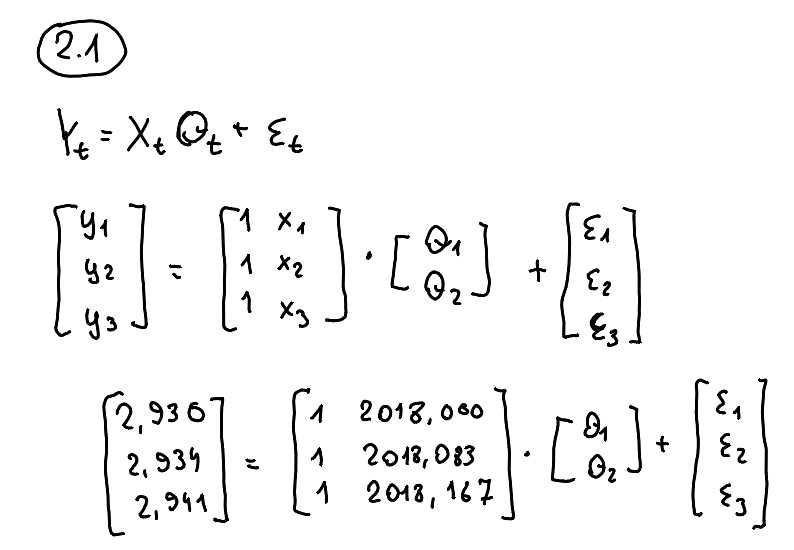 2.1
Y_t = X_t θ_t + ε_t
[y1 y2 y3] = [1 x1 1 x2 1 x3] · [θ1 θ2] + [ε1 ε2 ε3]
[2,930 2,934 2,941] = [1 2018,000 1 2018,083 1 2018,167] · [θ1 θ2] + [ε1 ε2 ε3]